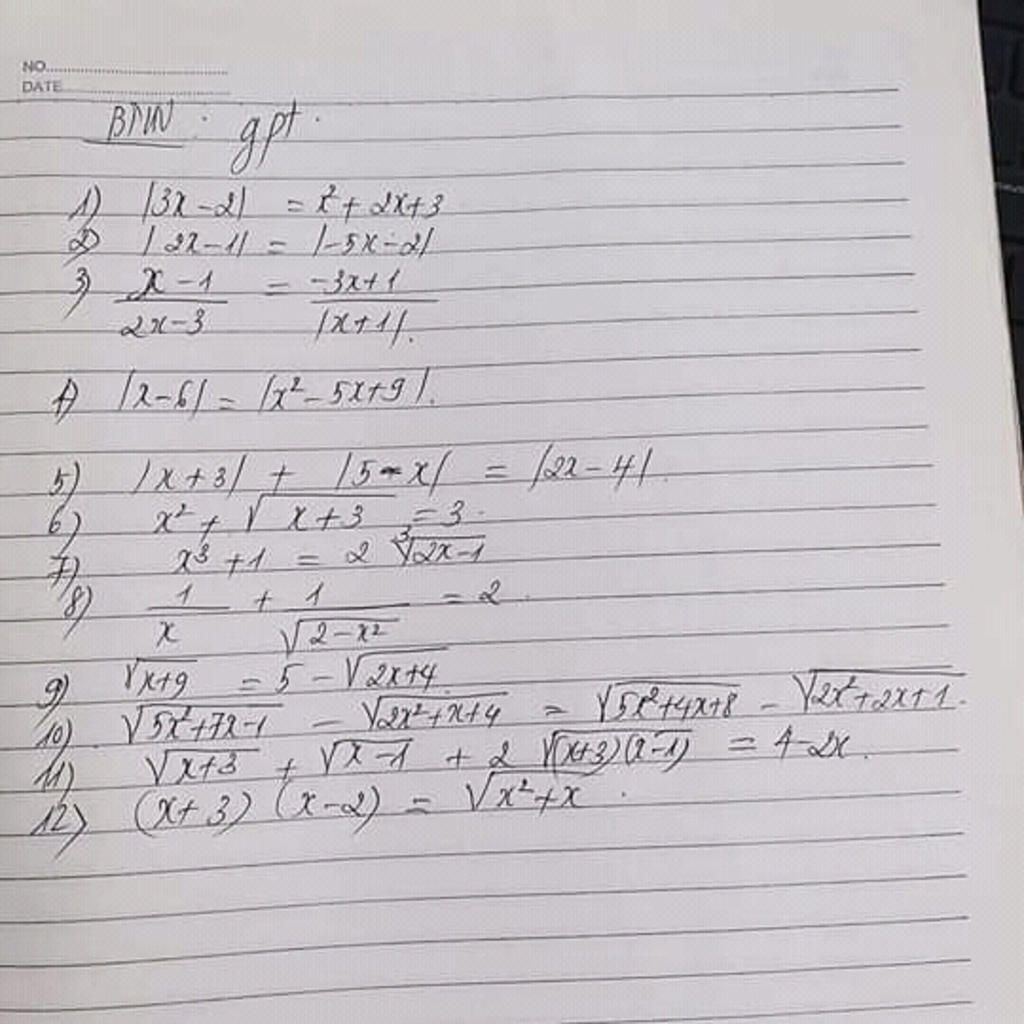 NO
DATE
BTVN : gpt.
1) |3x-2| = x²+2x+3
2) |2x-1| = |-5x-2|
3) (x-1)/(2x-3) = (-3x+1)/|x+1|.
4) |x-6| = |x²-5x+9|.
5) |x+3| + |5-x| = |2x-4|.
6) x² + √(x+3) = 3.
7) x³+1 = 2∛(2x-1)
8) 1/x + 1/√(2-x²) = 2.
9) √(x+9) = 5 - √(2x+4)
10) √(5x²+7x-1) - √(2x²+x+4) = √(5x²+4x+8) - √(2x²+2x+1).
11) √(x+3) + √(x-1) + 2√((x+3)(x-1)) = 4-2x.
12) (x+3)(x-2) = √(x²+x).